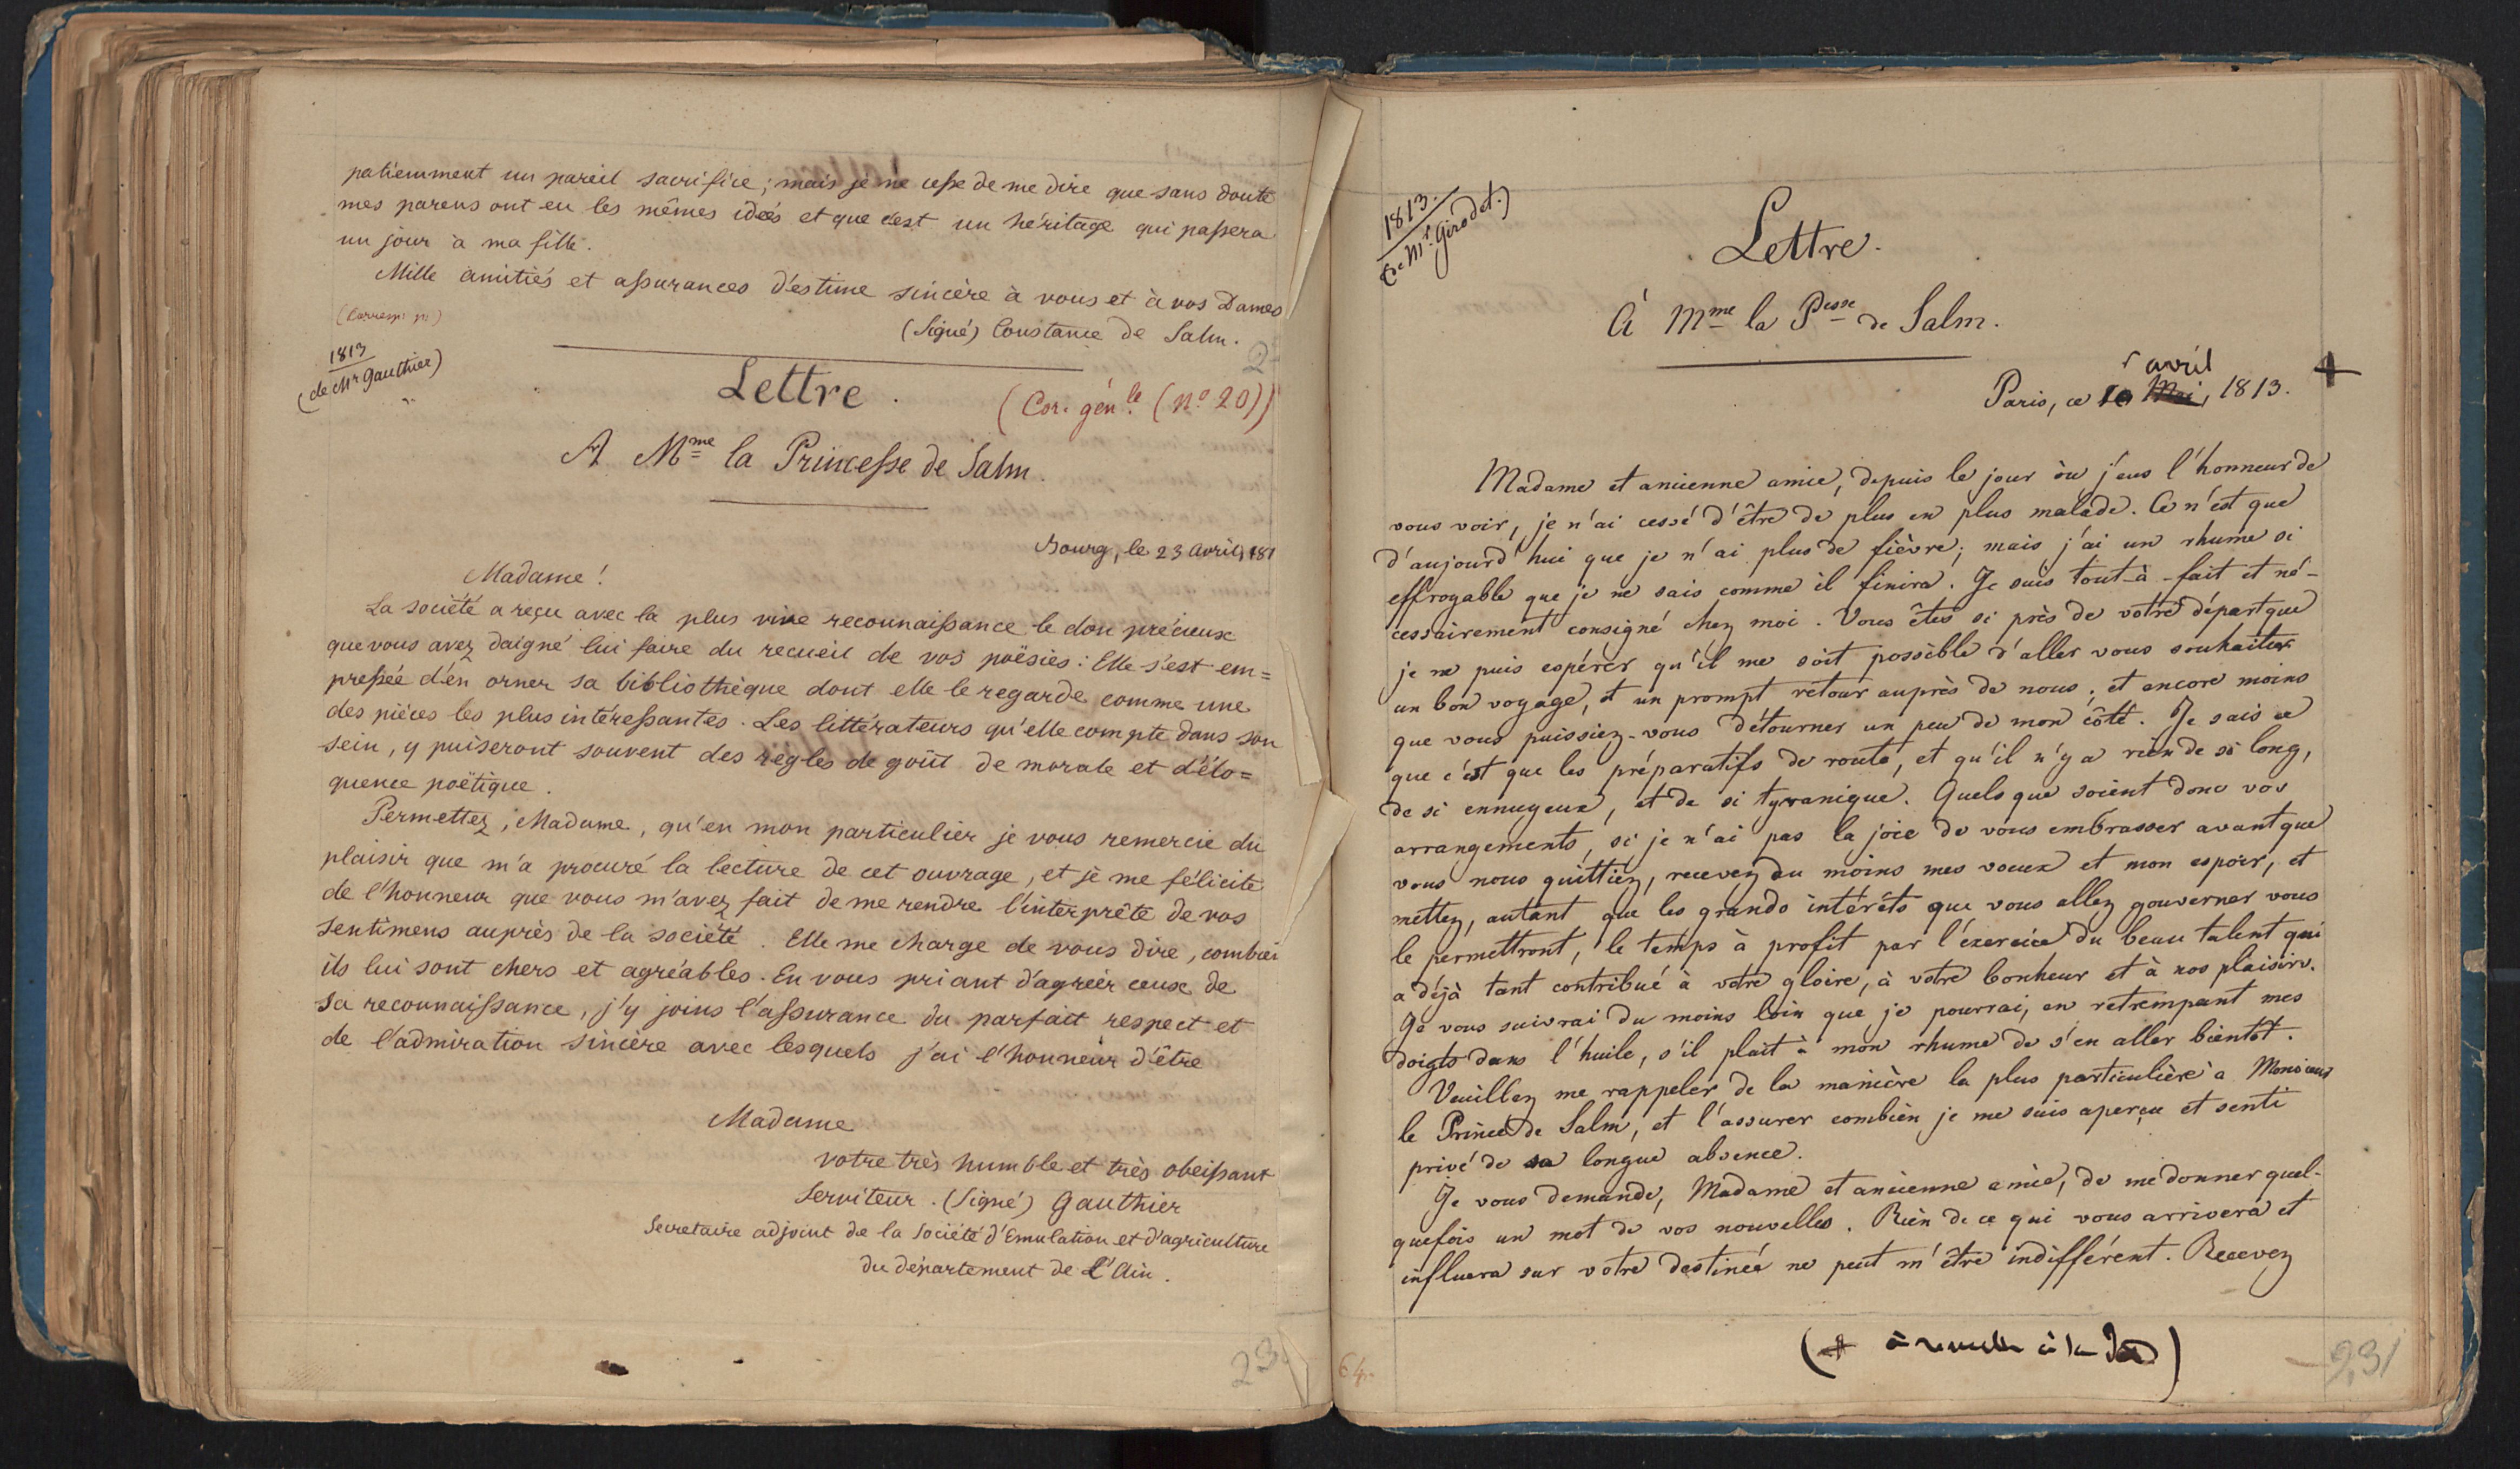 patiemment un pareil sacrifice; mais je ne cesse de me dire que sans doute
mes parens ont eu les mêmes idées et que c'est un héritage qui passera
un jour à ma fille.
Mille amitiés et assurances d'estime sincère à vous et à vos Dames
(Signé) Constance de Salm.
1813
(de Mr Gauthier)
Lettre.
(Cor. génle. (No 20))
A Mme la Princesse de Salm.
Bourg, le 23 avril, 181
Madame!
La société a reçu avec la plus vive reconnaissance le don précieux
que vous avez daigné lui faire du recueil de vos poësies: Elle s'est em=
pressée d'en orner sa bibliothèque dont elle le regarde comme une
des pièces les plus intéressantes. Les littérateurs qu'elle compte dans son
sein, y puiseront souvent des règles de goût de morale et d'élo=
quence poëtique.
Permettez, Madame, qu'en mon particulier je vous remercie du
plaisir que m'a procuré la lecture de cet ouvrage, et je me félicite
de l'honneur que vous m'avez fait de me rendre l'interprête de vos
sentimens auprès de la société. Elle me charge de vous dire, combien
ils lui sont chers et agréables. En vous priant d'agréer ceux de
sa reconnaissance, j'y joins l'assurance du parfait respect et
de l'admiration sincère avec lesquels j'ai l'honneur d'être
Madame
votre très humble et très obeissant
Serviteur. (Signé) Gauthier
Secretaire adjoint de la Société d'Emulation et d'agriculture
du département de L'Ain.
23
1813.
(de Mr. Girodet.)
Lettre.
À Mme la Pesse de Salm.
avril
Paris, ce 10 Mai, 1813.
Madame et ancienne amie, depuis le jour où j'eus l'honneur de
vous voir, je n'ai cessé d'être de plus en plus malade. Ce n'est que
d'aujourd'hui que je n'ai plus de fièvre; mais j'ai un rhume si
effroyable que je ne sais comme il finira. Je suis tout-à-fait et né-
cessairement consigné chez moi. Vous êtes si près de votre départ que
je ne puis espérer qu'il me soit possible d'aller vous souhaiter
un bon voyage, et un prompt retour auprès de nous; et encore moins
que vous puissiez-vous détourner un peu de mon côté. Je sais ce
que c'est que les préparatifs de route, et qu'il n'y a rien de si long,
de si ennuyeux, et de si tyranique. Quels que soient donc vos
arrangements, si je n'ai pas la joie de vous embrasser avant que
vous nous quittiez, recevez du moins mes voeux et mon espoir, et
mettez, autant que les grands intérêts que vous allez gouverner vous
le permettront, le temps à profit par l'exercice du beau talent qui
a déjà tant contribué à votre gloire, à votre bonheur et à nos plaisirs.
Je vous suivrai du moins loin que je pourrai, en retrempant mes
doigts dans l'huile, s'il plait à mon rhume de s'en aller bientôt.
Veuillez me rappeler de la manière la plus particulière a Monsieur
le Prince de Salm, et l'assurer combien je me suis aperçu et senti
privé de sa longue absence.
Je vous demande, Madame et ancienne amie, de me donner quel-
quefois un mot de vos nouvelles. Rien de ce qui vous arrivera et
influera sur votre destinée ne peut m'être indifférent. Recevez
(+ à à la
231